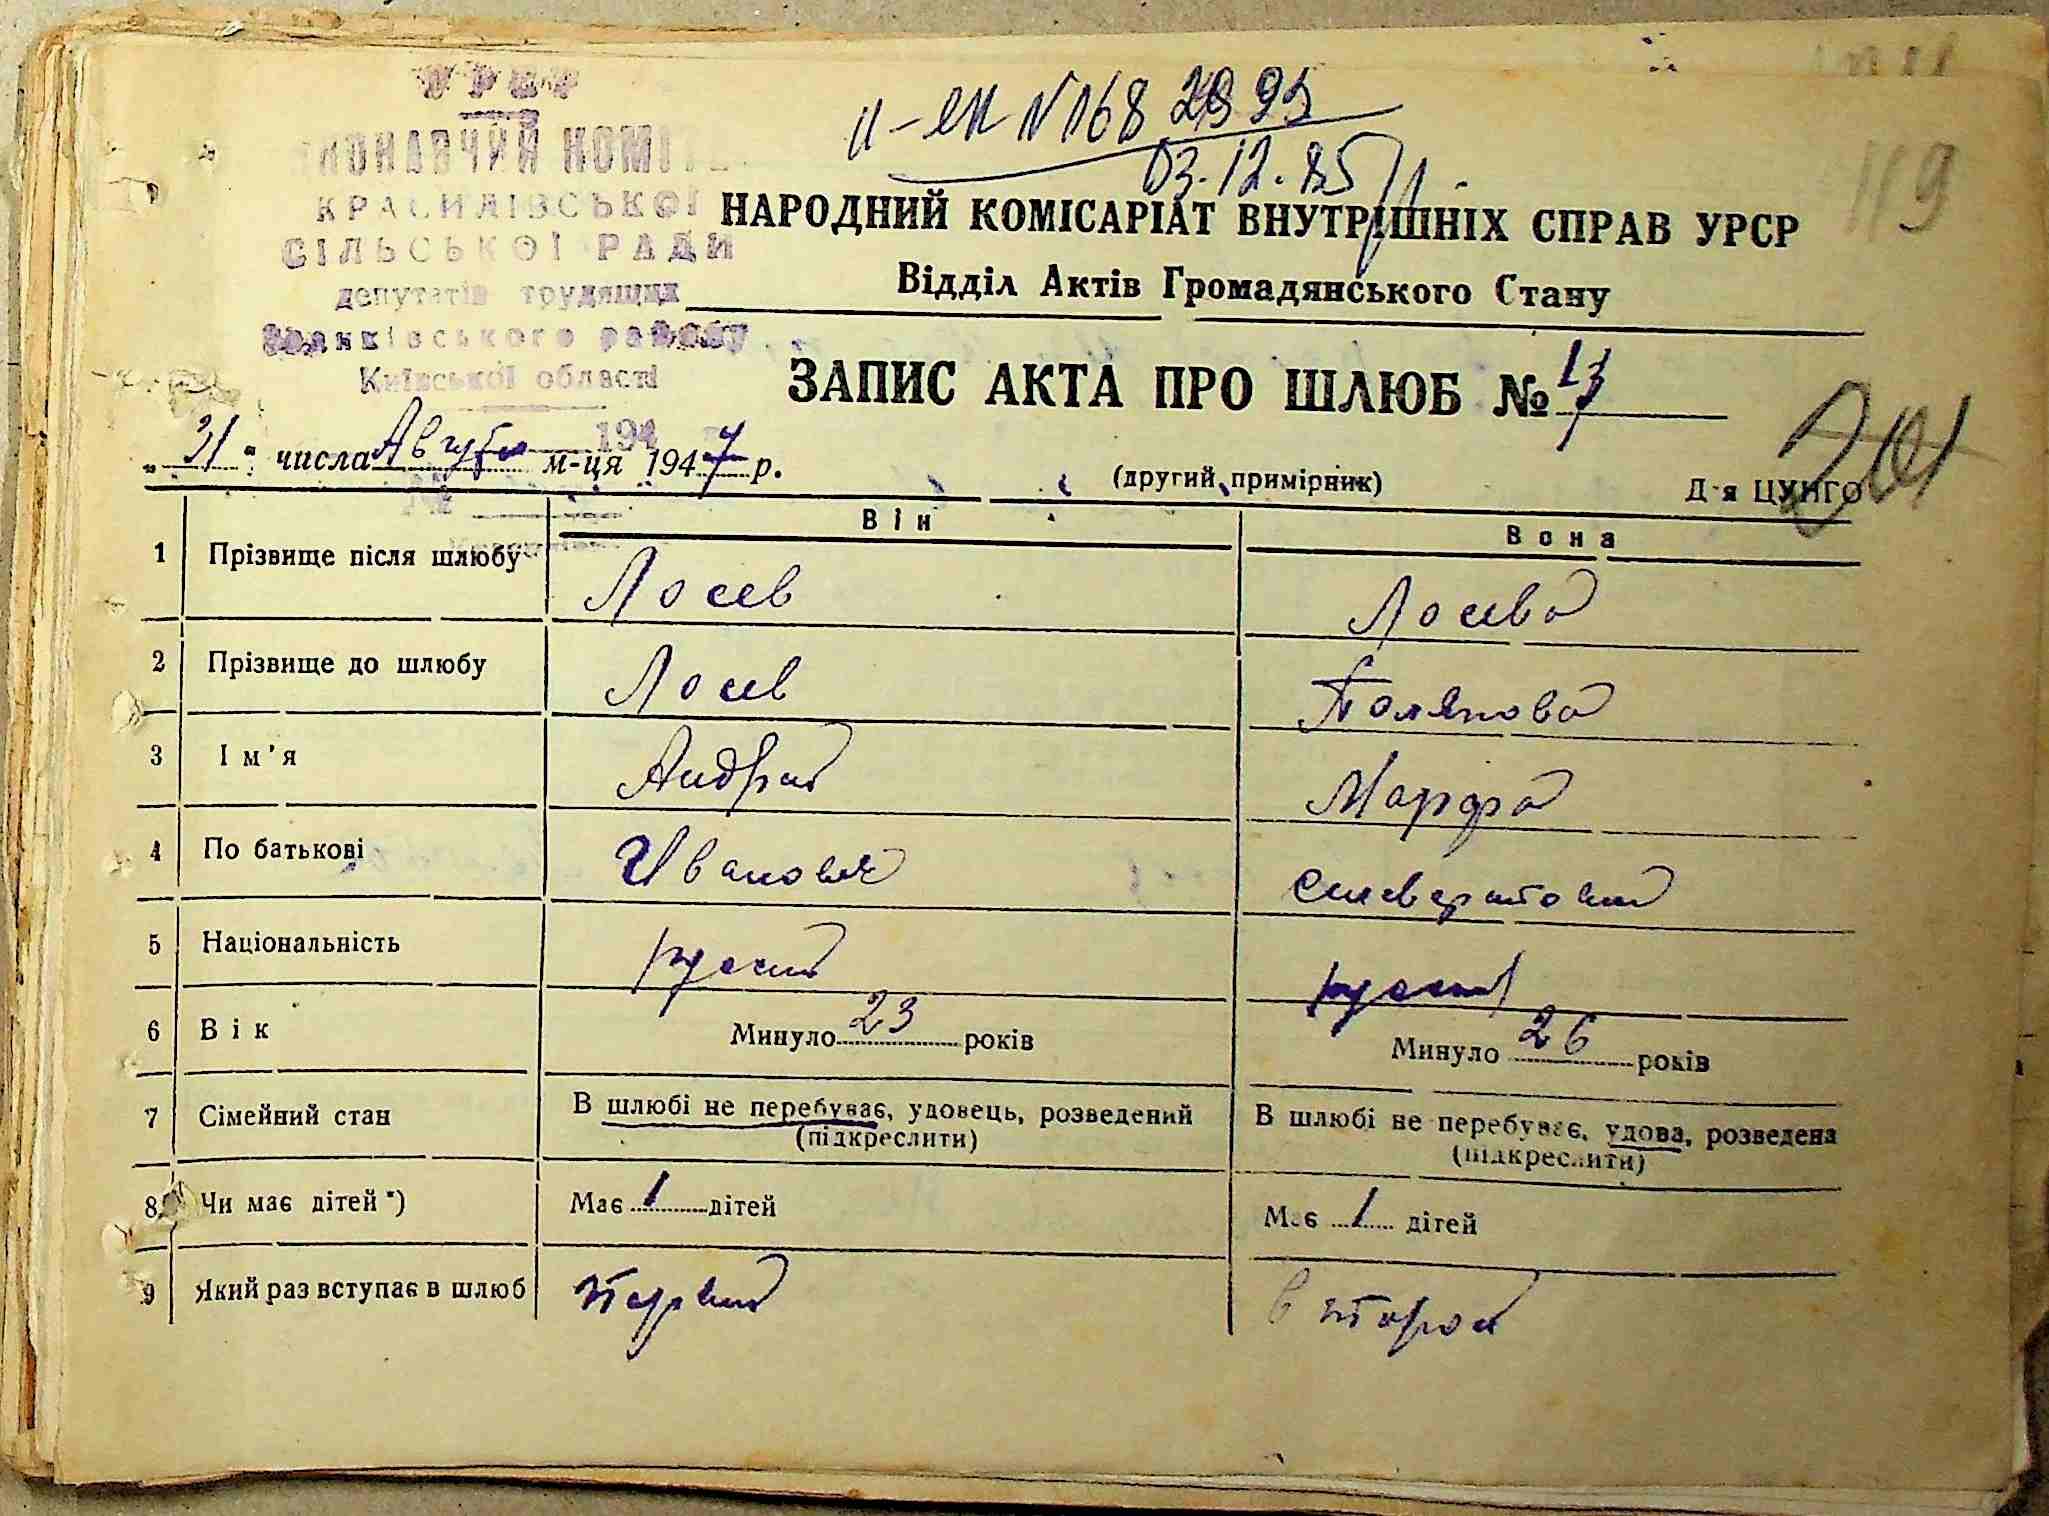 УРСР
ВИКОНАВЧИЙ КОМІТЕТ
КРАСИЛІВСЬКОЇ
СІЛЬСЬКОЇ РАДИ
депутатів трудящих
Іванківського району
Київської області
194
№
03.12.85
119
НАРОДНИЙ КОМІСАРІАТ ВНУТРІШНІХ СПРАВ УРСР
Відділ Актів Громадянського Стану
ЗАПИС АКТА ПРО ШЛЮБ № 13
201
„31“ числа Августа м-ця 1947 р.
(другий примірник)
Д-я ЦУНГО
Він Вона
1 Прізвище після шлюбу Лосев Лосева
2 Прізвище до шлюбу Лосев Полякова
3 Ім'я Андрей Марфа
4 По батькові Иванович
5 Національність руский руский
6 Вік Минуло 23 років Минуло 26 років
7 Сімейний стан В шлюбі не перебуває, удовець, розведений В шлюбі не перебуває, удова, розведена
(підкреслити) (підкреслити)
8 Чи має дітей *) Має 1 дітей Має 1 дітей
9 Який раз вступає в шлюб первий второй